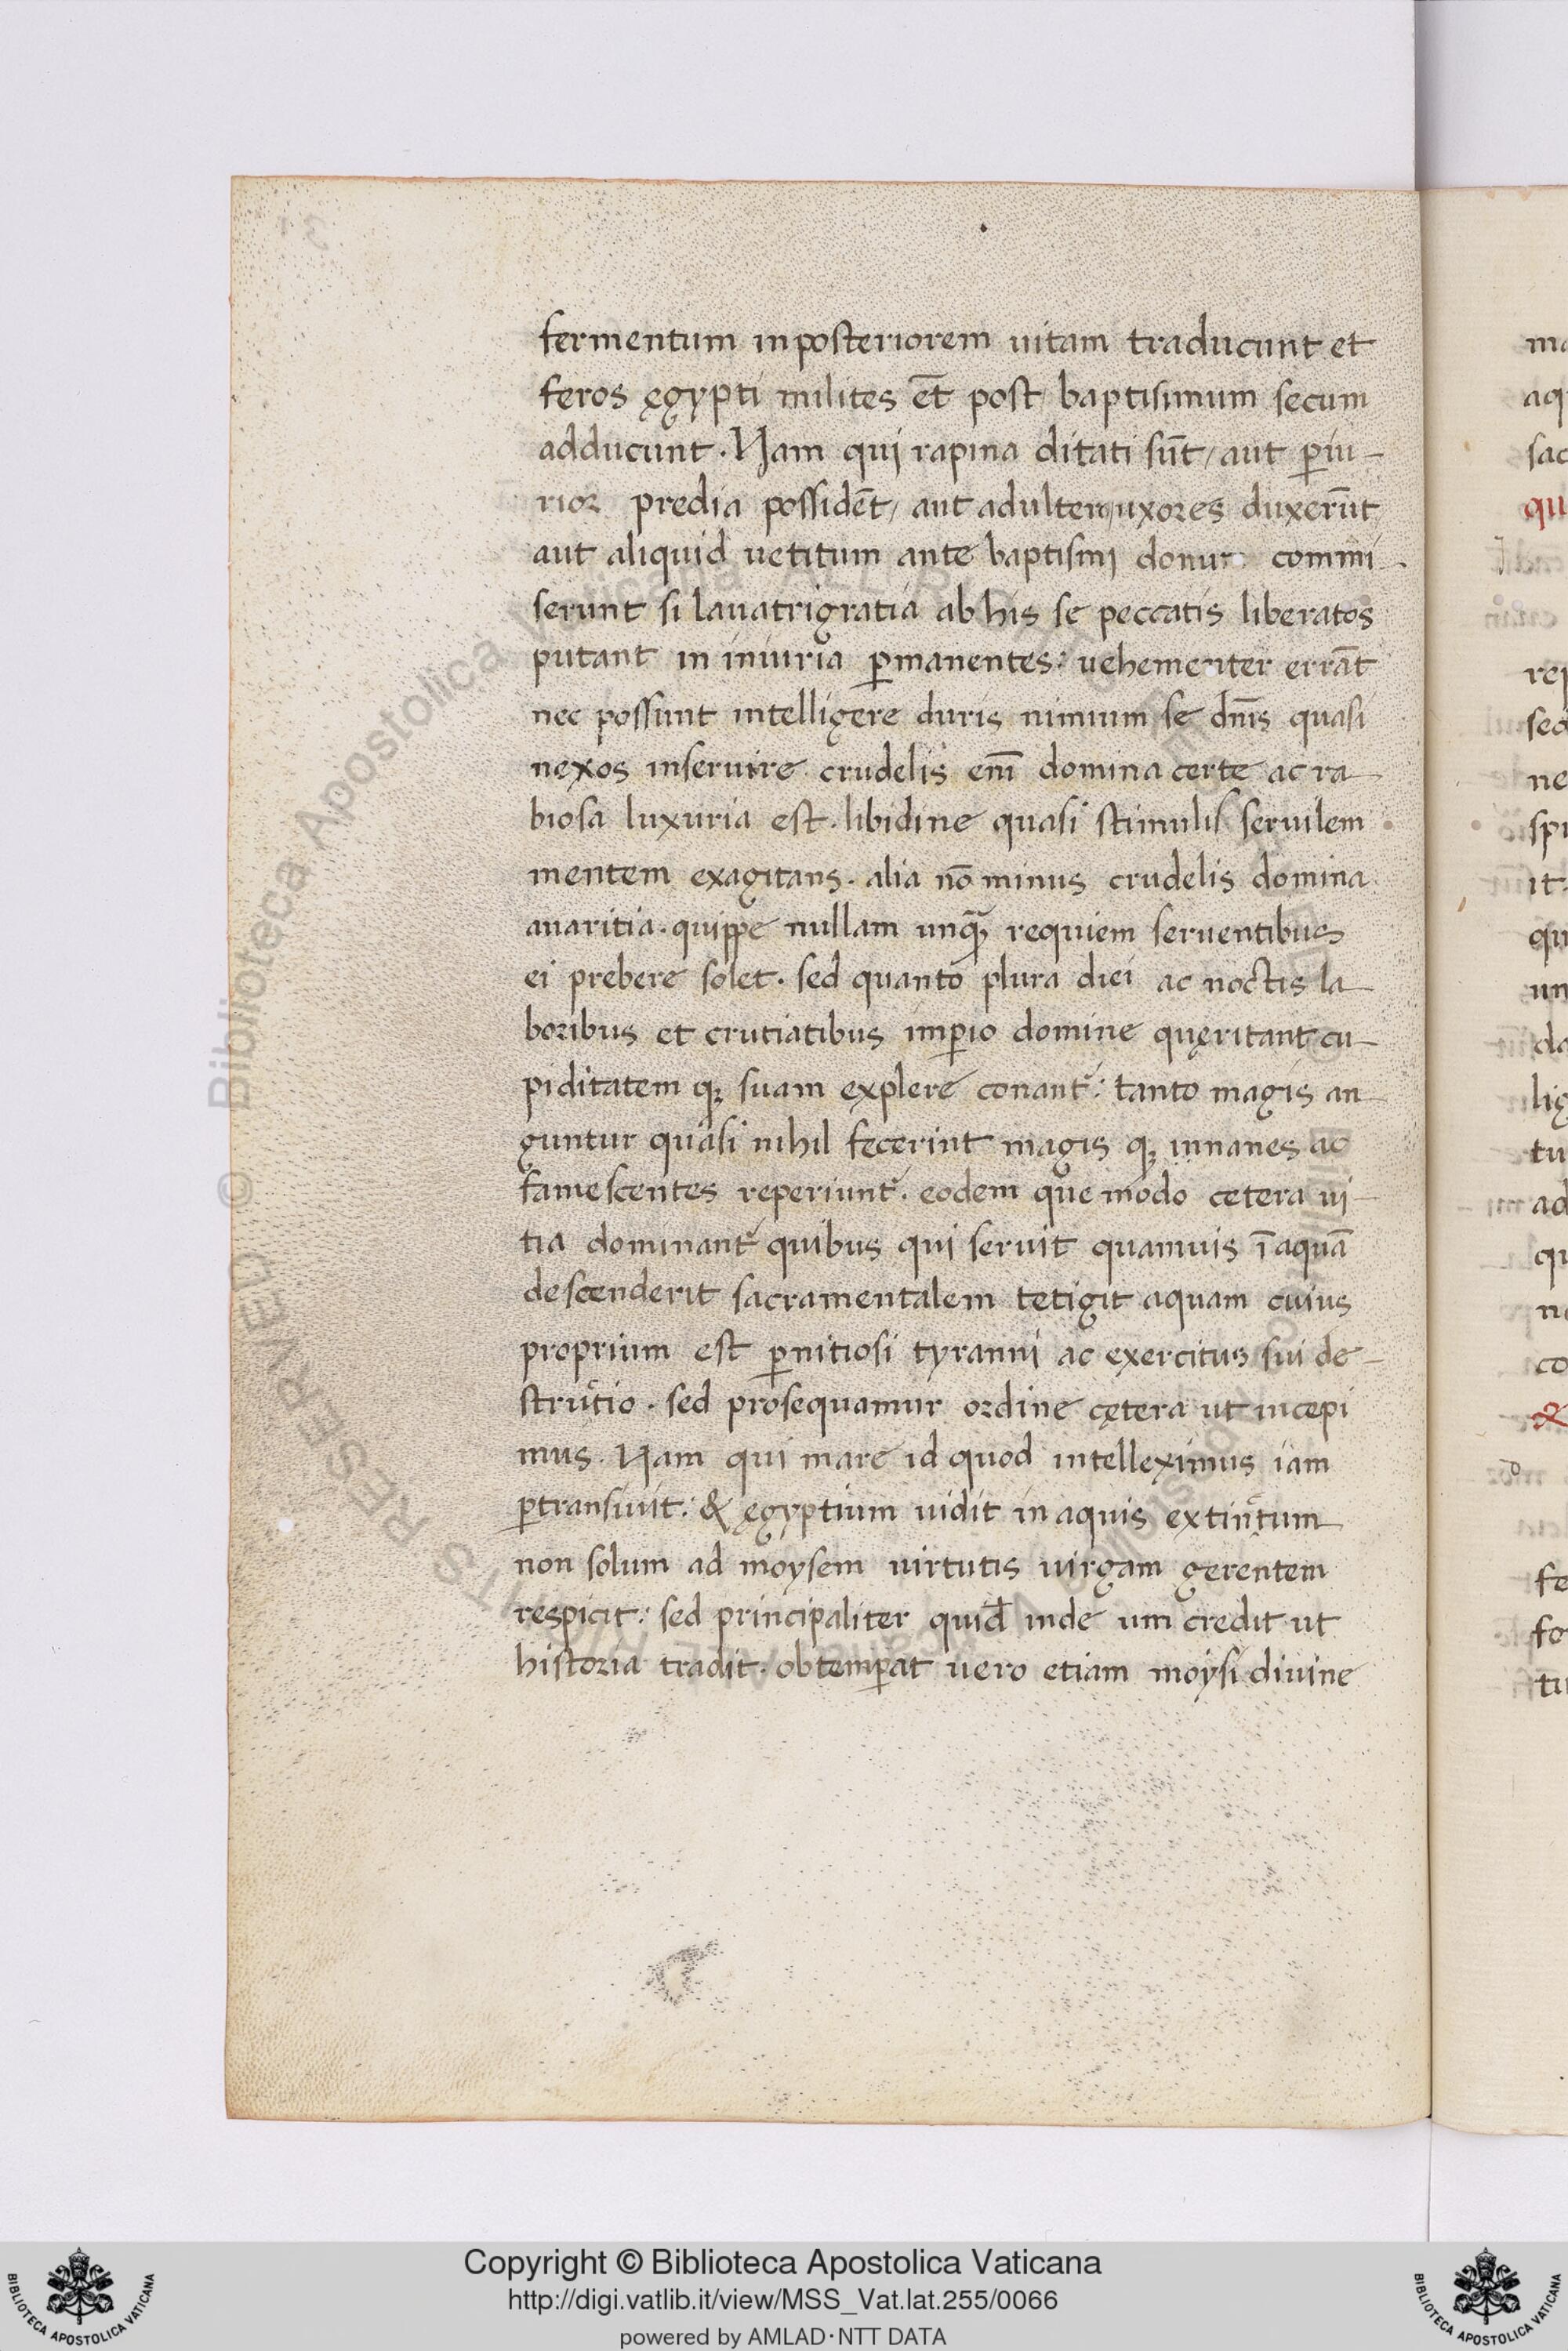 fermentum inposteriorem uitam traducunt et
feros ęgypti milites et̄ post baptismum secum
adducunt. Nam qui rapina ditati sūt, aut ꝑiu-
rioꝝ predia possidēt, aut adulteri, uxores duxerūt,
aut aliquid uetitum ante baptismi donum commi-
serunt si lauatrigratia ab his se peccatis liberatos
putant in iniuria ꝑmanentes: uehementer errāt
nec possunt intelligere duris nimium se dn̄is quasi
nexos inseruire. crudelis eni̅ domina certe ac ra-
biosa luxuria est. libidine quasi stimulis seruilem
mentem exagitans. alia nō minus crudelis domina
auaritia. quippe nullam unqꝫ̄ requiem seruentibus
ei prebere solet. sed quanto plura diei ac noctis la-
boribus et crutiatibus imꝑio domine quęritant cu-
piditatem qꝫ suam explere conant᷑: tanto magis an-
guntur quasi nihil fecerint magis qꝫ innanes ac
famescentes reperiunt᷑. eodem que modo cetera ui-
tia dominant᷑ quibus qui seruit quamuis ī aquā
descenderit sacramentalem tetigit aquam cuius
proprium est ꝑnitiosi tyranni ac exercitus sui de-
strutio. sed prosequamur ordine cętera ut incepi
mus. Nam qui mare id quod intelleximus iam
ꝑtransiuit: & ęgyptium uidit in aquis extintum
non solum ad moysem uirtutis uirgam gerentem
respicit: sed principaliter quid̄ inde um credit ut
historia tradit. obtemꝑat uero etiam moysi diuine
Copyright © Biblioteca Apostolica Vaticana
http://digi.vatlib.it/view/MSS_Vat.lat.255/0066
powered by AMLAD·NTT DATA